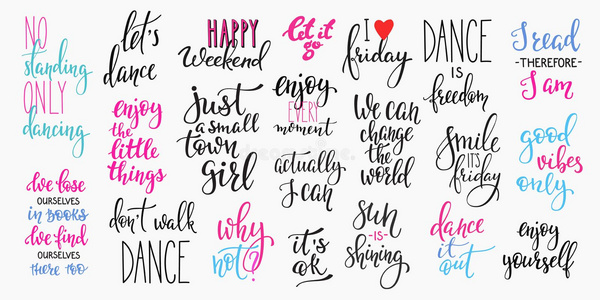 NO
standing
ONLY
dancing
we lose
OURSELVES
in BOOKS
we find
OURSELVES
there too
let's
dance
enjoy
the
little
things
don't walk
DANCE
HAPPY
Weekend
just
a small
town
girl
why
not?
let it
go
enjoy
EVERY
moment
actually
I can
it's
ok
I
friday
We can
change
the
world
sun
-IS-
shining
DANCE
IS
freedom
smile
IT'S
friday
dance
it
out
I read
-THEREFORE-
I am
good
vibes
only
enjoy
yourself